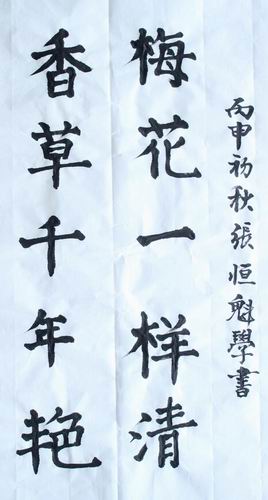 丙申初秋張恒魁學書
梅花一样清
香草千年艳